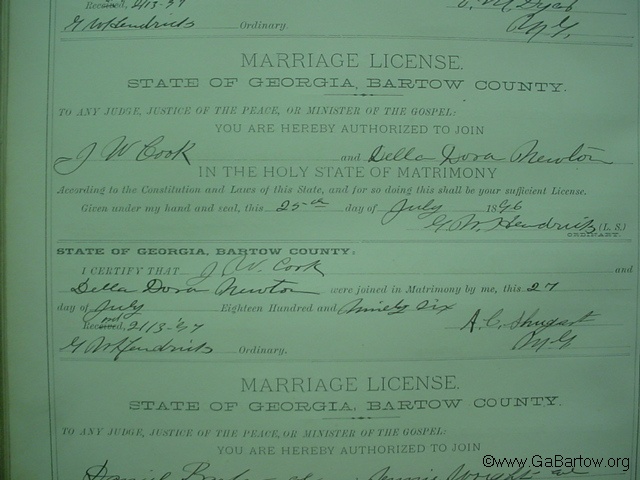 Received, 2/13-97
G W Hendricks Ordinary. M.G.
MARRIAGE LICENSE.
STATE OF GEORGIA, BARTOW COUNTY.
TO ANY JUDGE, JUSTICE OF THE PEACE, OR MINISTER OF THE GOSPEL:
YOU ARE HEREBY AUTHORIZED TO JOIN
J W Cook and Della Dora Newton
IN THE HOLY STATE OF MATRIMONY
According to the Constitution and Laws of this State, and for so doing this shall be your sufficient License.
Given under my hand and seal, this 25th day of July 1896
G. W. Hendricks (L. S.)
ORDINARY.
STATE OF GEORGIA, BARTOW COUNTY:
I CERTIFY THAT J. W. Cook and
Della Dora Newton were joined in Matrimony by me, this 27
day of July Eighteen Hundred and Ninety Six
Received, 2/13-97 A. C. Shugart
G W Hendricks Ordinary. M.G
MARRIAGE LICENSE.
STATE OF GEORGIA, BARTOW COUNTY.
TO ANY JUDGE, JUSTICE OF THE PEACE, OR MINISTER OF THE GOSPEL:
YOU ARE HEREBY AUTHORIZED TO JOIN
Daniel Jennie Wright
©www.GaBartow.org